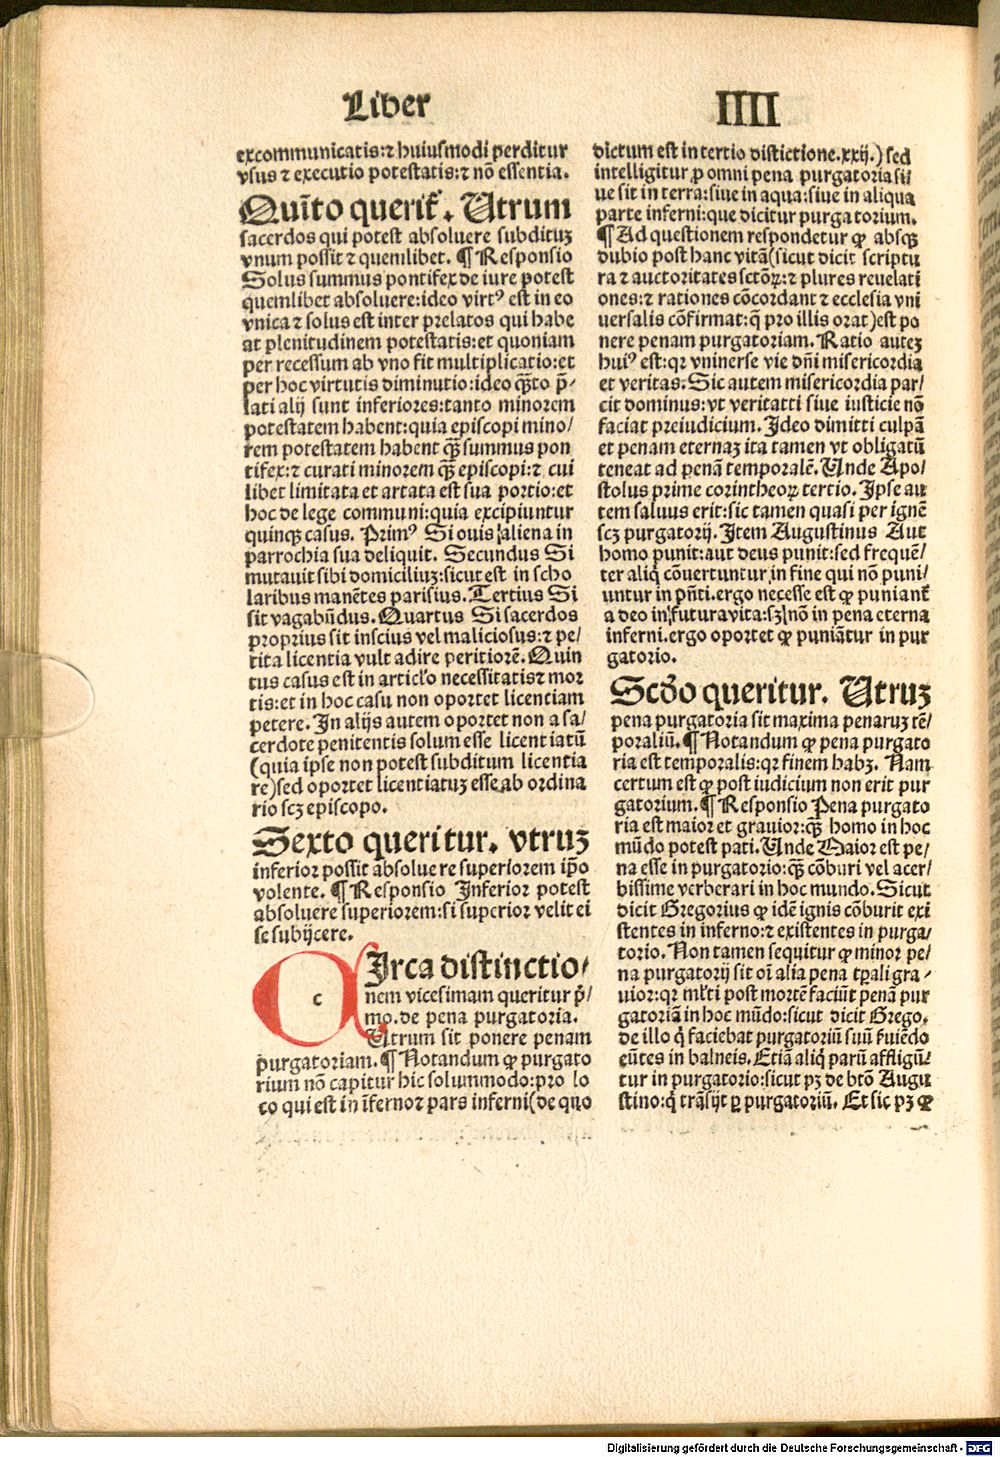 Liber
IIII
excommunicatis:⁊ huiusmodi perditur
vsus ⁊ executio potestatis:⁊ nō essentia.
Quīto querit᷑. Utrum
sacerdos qui potest absoluere subdituꝫ
vnum possit ⁊ quemlibet. ¶ Responsio
Solus summus pontifex de iure potest
quemlibet absoluere:ideo virtꝰ est in eo
vnica ⁊ solus est inter prelatos qui habe
at plenitudinem potestatis:et quoniam
per recessum ab vno fit multiplicatio:et
per hoc virtutis diminutio:ideo qꝫ̄to p̄-
lati alij sunt inferiores:tanto minorem
potestatem habent:quia episcopi mino/
rem potestatem habent qꝫ̄ summus pon
tifex:⁊ curati minorem qꝫ̄ episcopi:⁊ cui
libet limitata et artata est sua portio:et
hoc de lege communi:quia excipiuntur
quinqꝫ casus. Primꝰ Si ouis aliena in
parrochia sua deliquit. Secundus Si
mutauit sibi domiciliuꝫ:sicut est in scho
laribus manētes parisius. Tertius Si
sit vagabūdus. Quartus Si sacerdos
proprius sit inscius vel maliciosus:⁊ pe/
tita licentia vult adire peritiorē. Quin
tus casus est in articl̓o necessitatis⁊ mor
tis:et in hoc casu non oportet licentiam
petere. In alijs autem oportet non a sa/
cerdote penitentis solum esse licentiatū
(quia ipse non potest subditum licentia
re)sed oportet licentiatuꝫ esse ab ordina
rio scꝫ episcopo.
Sexto queritur. vtruꝫ
inferior possit absoluere superiorem ip̄o
volente. ¶ Responsio Inferior potest
absoluere superiorem:si superior velit ei
se subijcere.
c
Irca distinctio/
nem vicesimam queritur p̄/
mo.de pena purgatoria.
Utrum sit ponere penam
purgatoriam. ¶ Notandum ꝙ purgato
rium nō capitur hic solummodo:pro lo
co qui est in īferno⁊ pars inferni(de quo
dictum est in tertio distictione.xxij.) sed
intelligitur ꝓ omni pena purgatoria si/
ue sit in terra:siue in aqua:siue in aliqua
parte inferni:que dicitur purgatorium.
¶ Ad questionem respondetur ꝙ absqꝫ
dubio post hanc vitā(sicut dicit scriptu
ra ⁊ auctoritates sctōꝝ:⁊ plures reuelati
ones:⁊ rationes cōcordant ⁊ ecclesia vni
uersalis cōfirmat:q̄ pro illis orat)est po
nere penam purgatoriam. Ratio auteꝫ
huiꝰ est:qꝛ vniuerse vie dn̄i misericordia
et veritas. Sic autem misericordia par/
cit dominus:vt veritatti siue iusticie nō
faciat preiudicium. Ideo dimitti culpā
et penam eternaꝫ ita tamen vt obligatū
teneat ad penā temporalē. Unde Apo/
stolus prime corintheoꝝ tertio. Ipse au
tem saluus erit:sic tamen quasi per ignē
scꝫ purgatorij. Item Augustinus Aut
homo punit:aut deus punit:sed frequē/
ter aliq̇ cōuertuntur in fine qui nō puni/
untur in pn̄ti.ergo necesse est ꝙ puniant᷑
a deo in futura vita:sꝫ nō in pena eterna
inferni.ergo oportet ꝙ puniātur in pur
gatorio.
Scd̄o queritur. Utruꝫ
pena purgatoria sit maxima penaruꝫ tē/
poraliū. ¶ Notandum ꝙ pena purgato
ria est temporalis:qꝛ finem habꝫ. Nam
certum est ꝙ post iudicium non erit pur
gatorium. ¶ Responsio Pena purgato
ria est maior et grauior:qꝫ̄ homo in hoc
mūdo potest pati. Unde Maior est pe/
na esse in purgatorio:qꝫ̄ cōburi vel acer/
bissime verberari in hoc mundo. Sicut
dicit Gregorius ꝙ idē ignis cōburit exi
stentes in inferno:⁊ existentes in purga/
torio. Non tamen sequitur ꝙ minor pe/
na purgatorij sit oī alia pena tꝑali gra/
uior:qꝛ ml̓ti post mortē faciūt penā pur
gatoriā in hoc mūdo:sicut dicit Grego.
de illo q̇ faciebat purgatoriū suū ẜuiēdo
eūtes in balneis. Etiā aliq̇ parū affligū/
tur in purgatorio:sicut pꝫ de btō Augu
stino:q̇ trāsijt ꝑ purgatoriū. Et sic pꝫ ꝙ
Digitalisierung gefördert durch die Deutsche Forschungsgemeinschaft - DFG